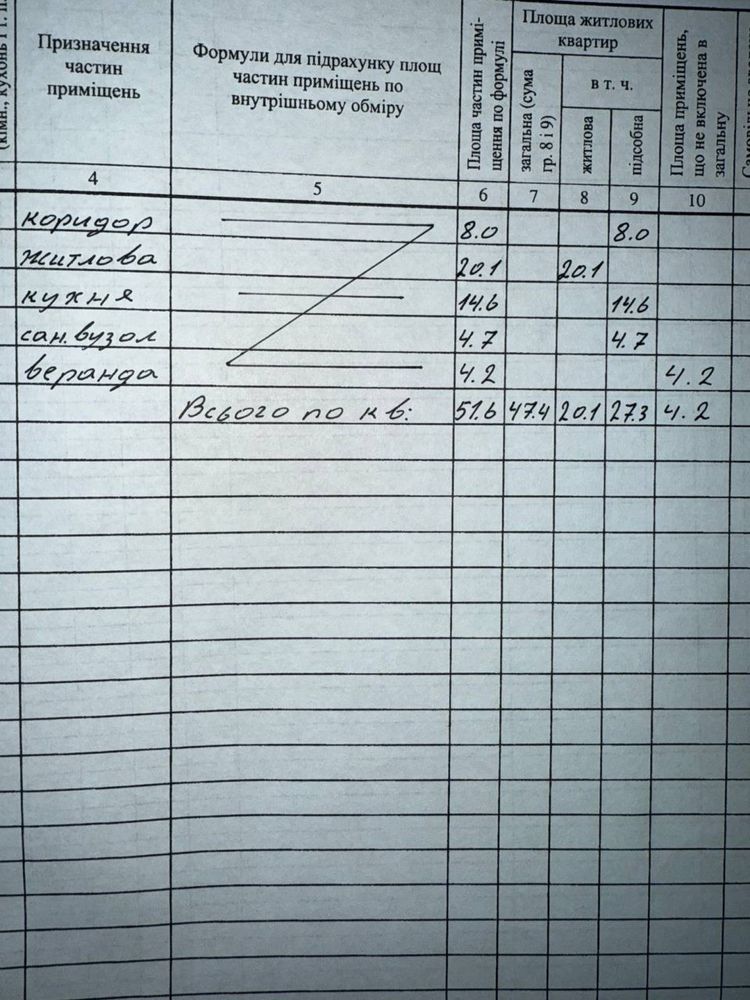 (кімн., кухонь і т. п.
Призначення
частин
приміщень
Формули для підрахунку площ
частин приміщень по
внутрішньому обміру
Площа частин примі-
щення по формулі
Площа житлових
квартир
загальна (сума
гр. 8 і 9)
в т. ч.
житлова
підсобна
Площа приміщень,
що не включена в
загальну
4 5 6 7 8 9 10
коридор 8.0 8.0
житлова 20.1 20.1
кухня 14.6 14.6
сан.вузол 4.7 4.7
веранда 4.2 4.2
Всього по кв: 51.6 47.4 20.1 27.3 4.2